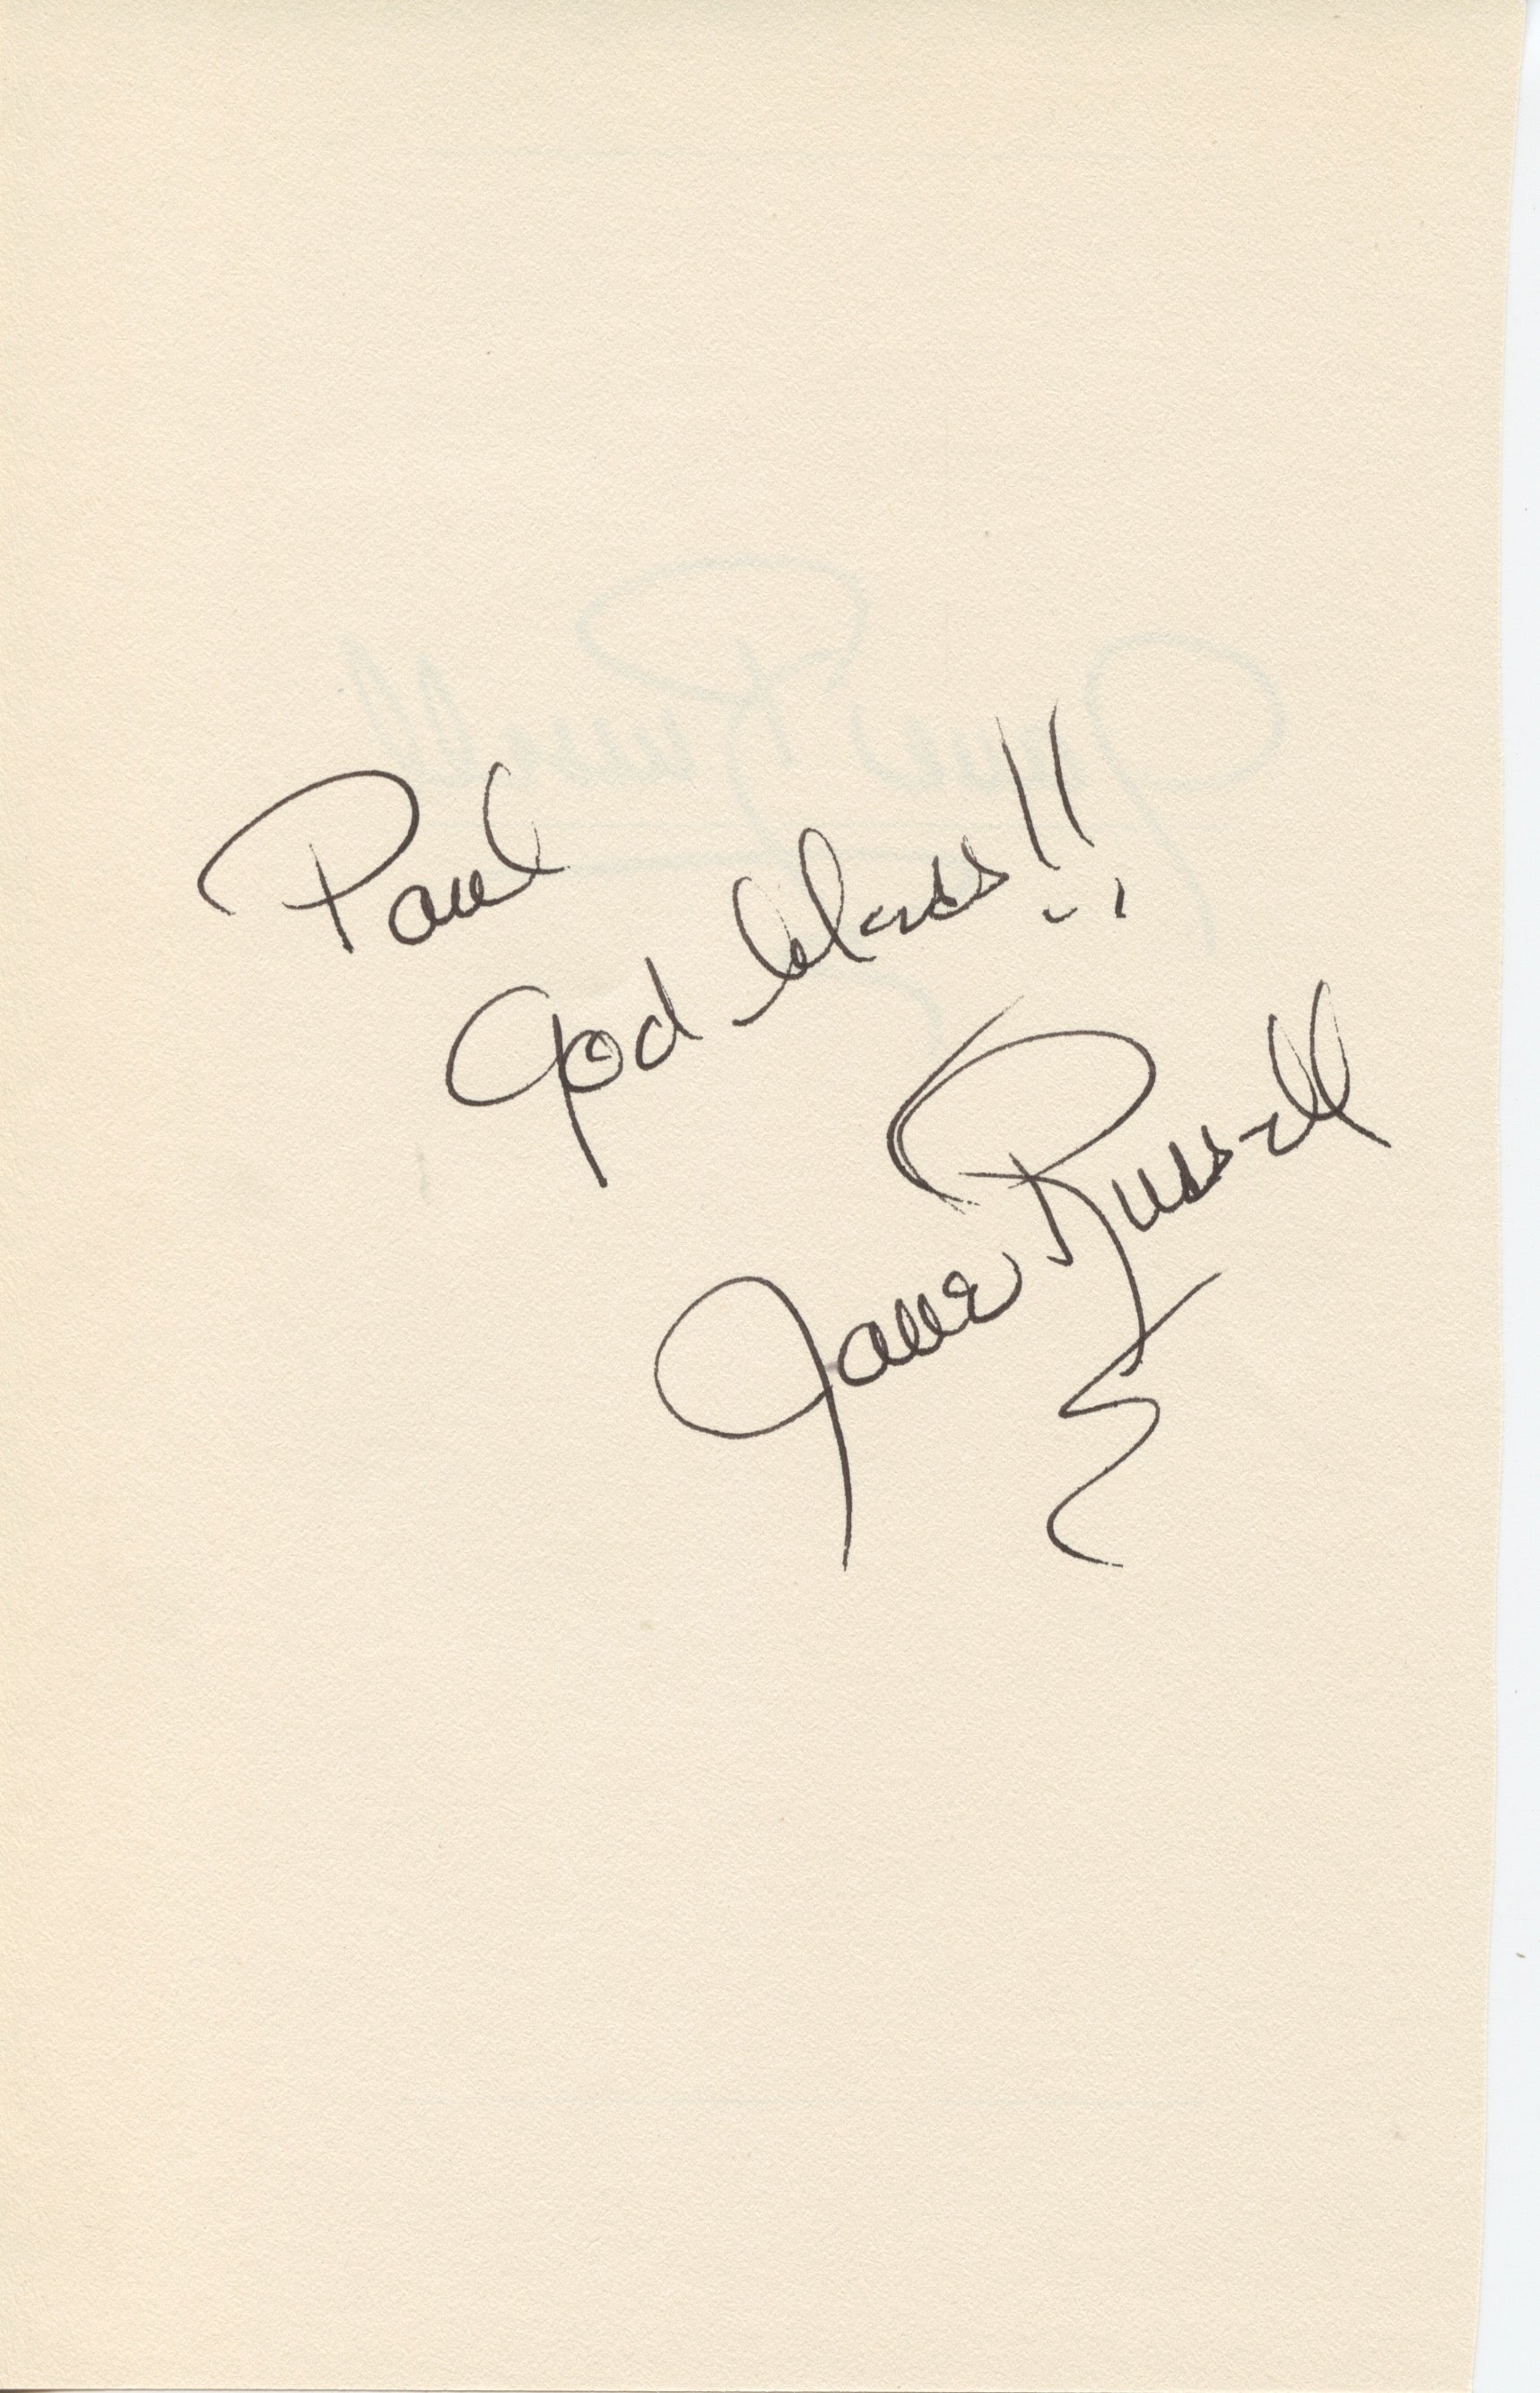 Paul
God bless!!
Jane Russell